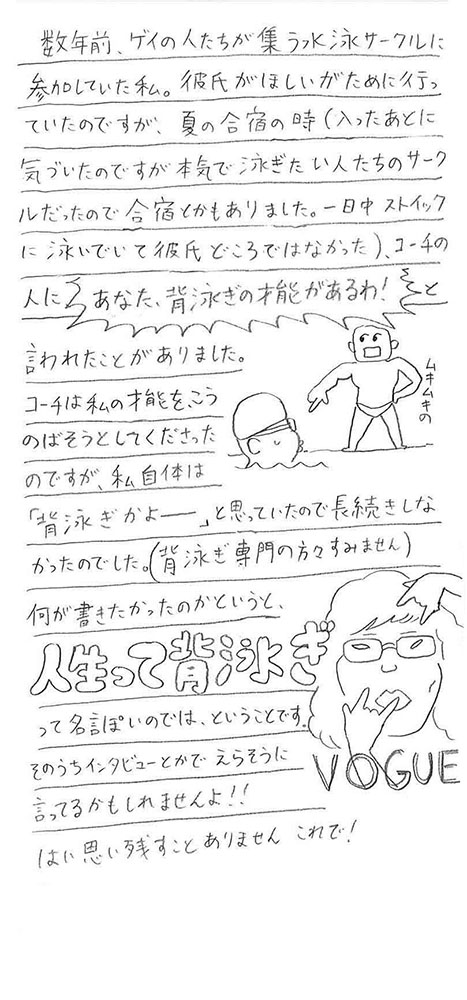 数年前、ゲイの人たちが集う水泳サークルに
参加していた私。彼氏がほしいがために行っ
ていたのですが、夏の合宿の時(入ったあとに
気づいたのですが本気で泳ぎたい人たちのサーク
ルだったので合宿とかもありました。一日中ストイック
に泳いでいて彼氏どころではなかった)、コーチの
人に あなた、背泳ぎの才能があるわ! と
言われたことがありました。
ムキムキの
コーチは私の才能を、こう
のばそうとしてくださった
のですが、私自体は
「背泳ぎかよ――」と思っていたので長続きしな
かったのでした。(背泳ぎ専門の方々すみません)
何が書きたかったのかというと、
人生って背泳ぎ
って名言ぽいのでは、ということです。
そのうちインタビューとかでえらそうに
VOGUE
言ってるかもしれませんよ!!
はい思い残すことありません これで!